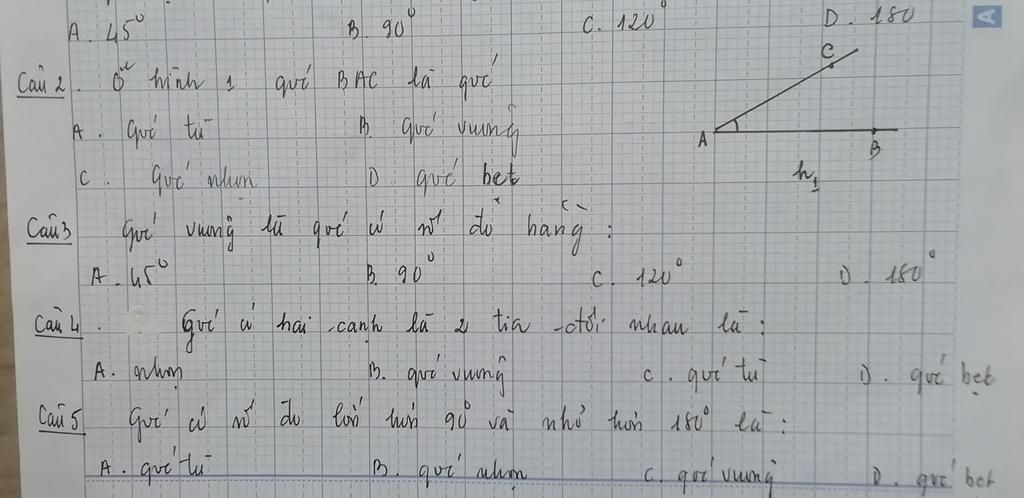 A. 45° B. 90° C. 120° D. 180
Câu 2. Ở hình 1 góc BAC là góc
A. góc tù B. góc vuông
C. góc nhọn D. góc bẹt
A B C h1
Câu 3 Góc vuông là góc có số đo bằng:
A. 45° B. 90° C. 120° D. 180°
Câu 4. Góc có hai cạnh là 2 tia đối nhau là:
A. nhọn B. góc vuông C. góc tù D. góc bẹt
Câu 5 Góc có số đo lớn hơn 90° và nhỏ hơn 180° là:
A. góc tù B. góc nhọn C. góc vuông D. góc bẹt